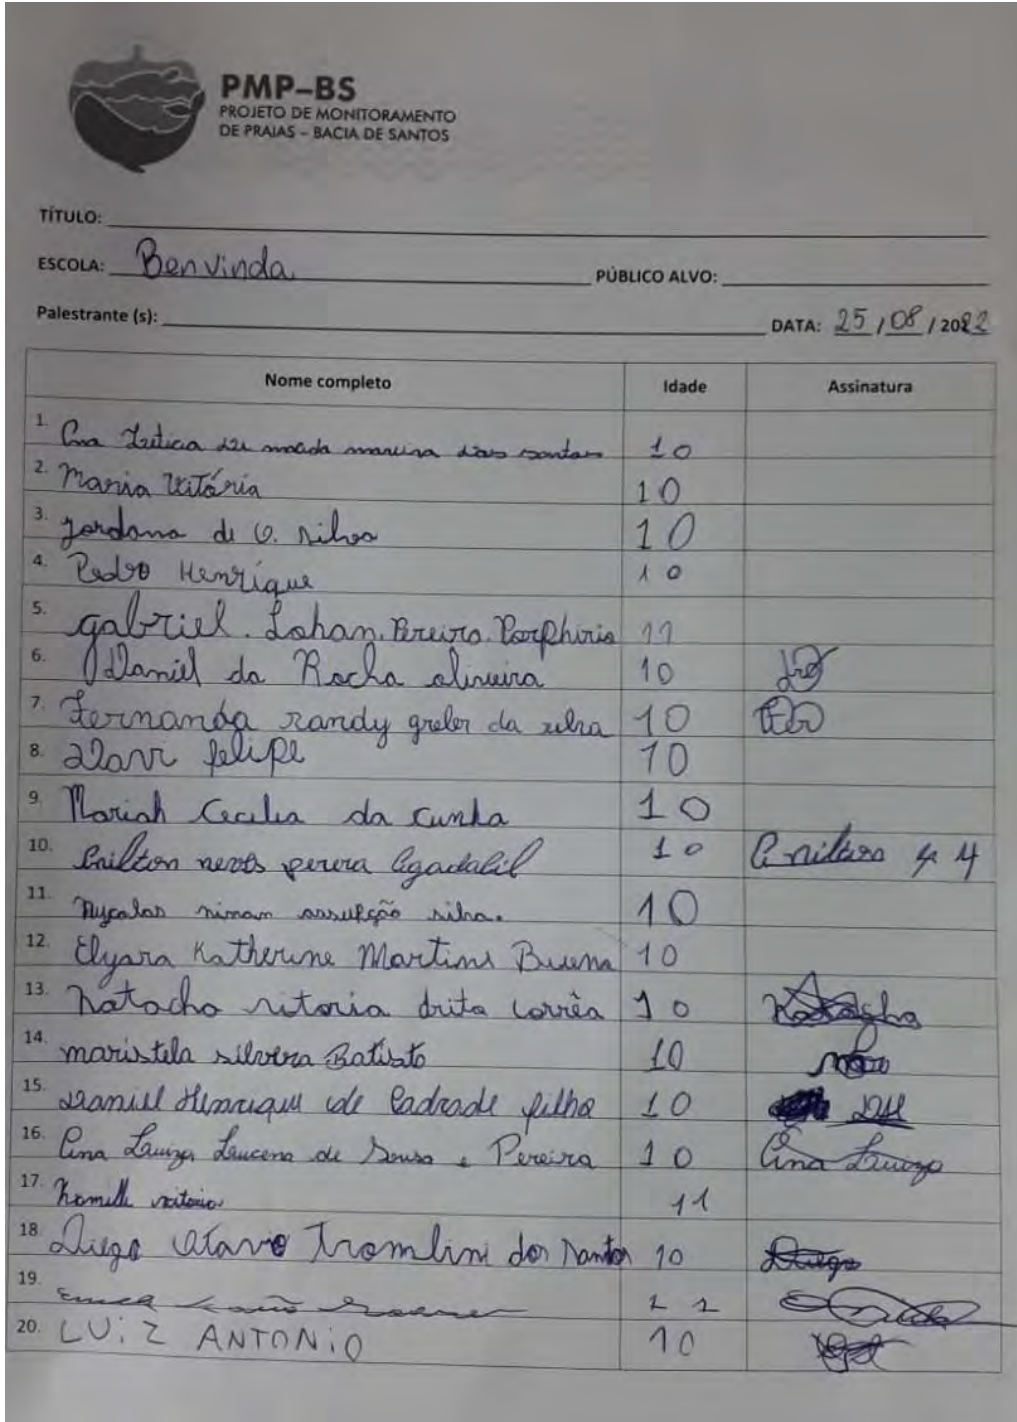 PMP-BS
PROJETO DE MONITORAMENTO
DE PRAIAS – BACIA DE SANTOS
TÍTULO:
ESCOLA: Benvinda PÚBLICO ALVO:
Palestrante (s): DATA: 25/08/2022
Nome completo Idade Assinatura
1. Ana Leticia santos 10
2. Maria Vitória 10
3. Jordana de O. Silva 10
4. Pedro Henrique 10
5. gabriel. Lohan. Pereira. Porphirio 11
6. Daniel da Rocha oliveira 10
7. Fernanda randy greler da silva 10
8. Davi felipe 10
9. Mariah Cecilia da Cunha 10
10. 10
11. silva. 10
12. Elyara Katherine Martins Buena 10
13. Natacha vitoria correa 10 Natacha
14. maristela silveira Batista 10
15. Daniel Henrique de filho 10
16. Ana Luiza Lucena de Sousa e Pereira 10 Ana Luiza
17. 11
18. Diego Otavio Tromlini dos Santos 10 Diego
19. 11
20. LUiZ ANTONiO 10